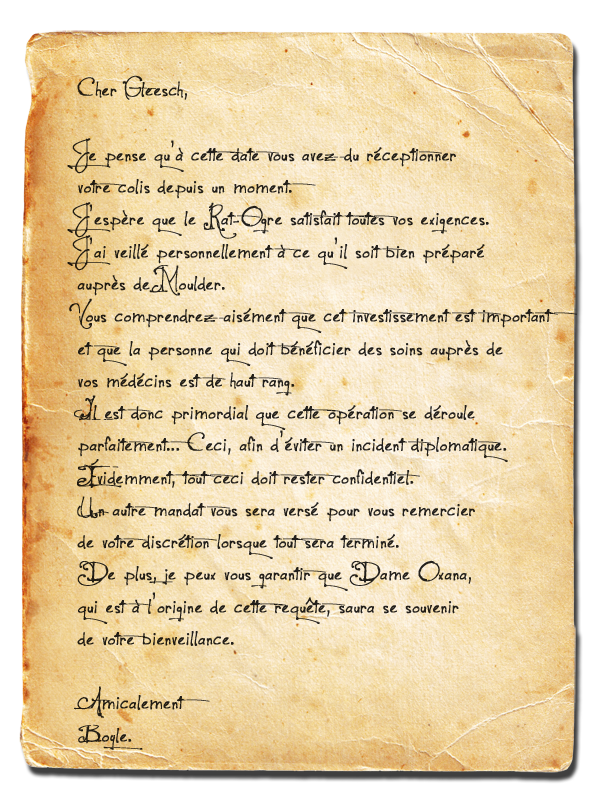 Cher Gleesch,
Je pense qu'à cette date vous avez du réceptionner
votre colis depuis un moment.
J'espère que le Rat-Ogre satisfait toutes vos exigences.
J'ai veillé personnellement à ce qu'il soit bien préparé
auprès de Moulder.
Vous comprendrez aisément que cet investissement est important
et que la personne qui doit bénéficier des soins auprès de
vos médécins est de haut rang.
Il est donc primordial que cette opération se déroule
parfaitement... Ceci, afin d'éviter un incident diplomatique.
Évidemment, tout ceci doit rester confidentiel.
Un autre mandat vous sera versé pour vous remercier
de votre discrétion lorsque tout sera terminé.
De plus, je peux vous garantir que Dame Oxana,
qui est à l'origine de cette requête, saura se souvenir
de votre bienveillance.
Amicalement
Bogle.